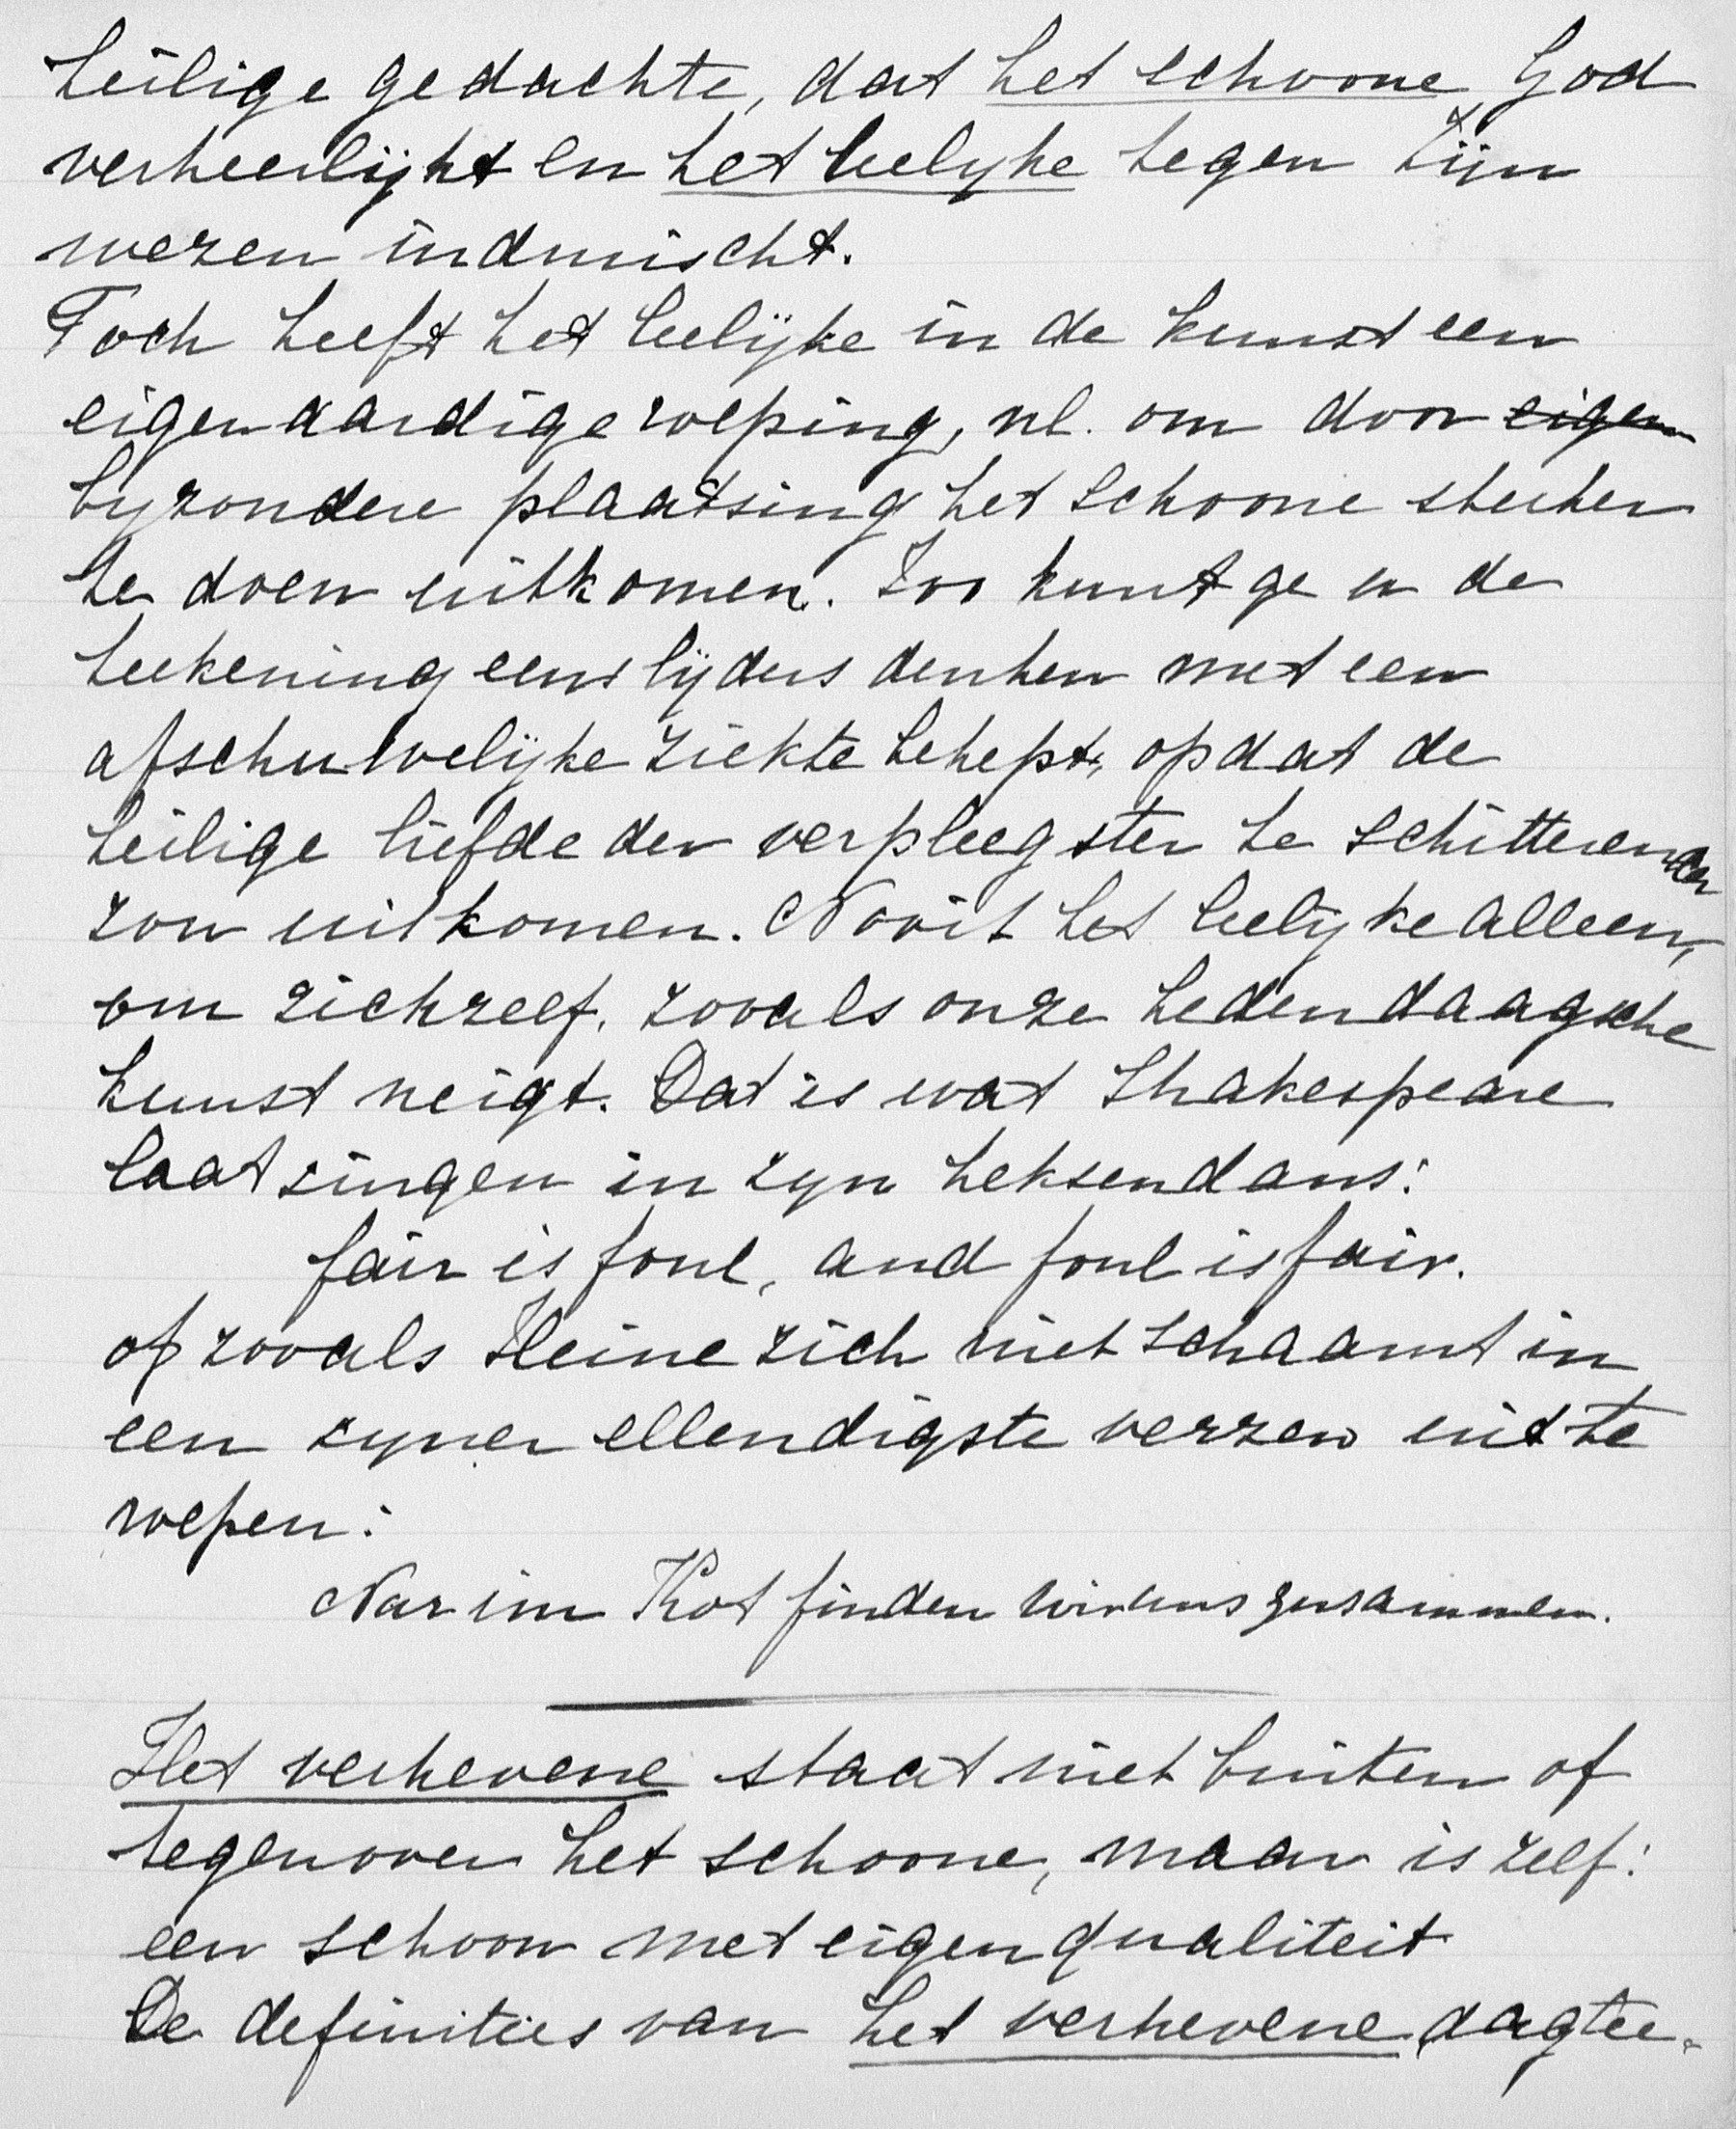 heilige gedachte, dat het schoone God
verheerlijkt en het leelijke tegen Zijn
wezen indruischt.
Toch heeft het leelijke in de kunst een
eigenaardige roeping, nl. om door eigen
byzondere plaatsing het schoone sterker
te doen uitkomen. Zoo kunt ge u de
teekening eens lijders denken met een
afschuwelijke ziekte behept, opdat de
heilige liefde der verpleegster te schitterender
zou uitkomen. Nooit het leelijke alleen,
om zichzelf, zooals onze hedendaagsche
kunst neigt. Dat is wat Shakespeare
laat zingen in zyn heksendans:
fair is foul, and foul is fair.
of zooals Heine zich niet schaamt in
een zyner ellendigste verzen uit te
roepen:
Nur im Kot finden wir uns zusammen.
Het verhevene staat niet buiten of
tegenover het schoone, maar is zelf:
een schoon met eigen qualiteit
De definities van het verhevene dagtee-